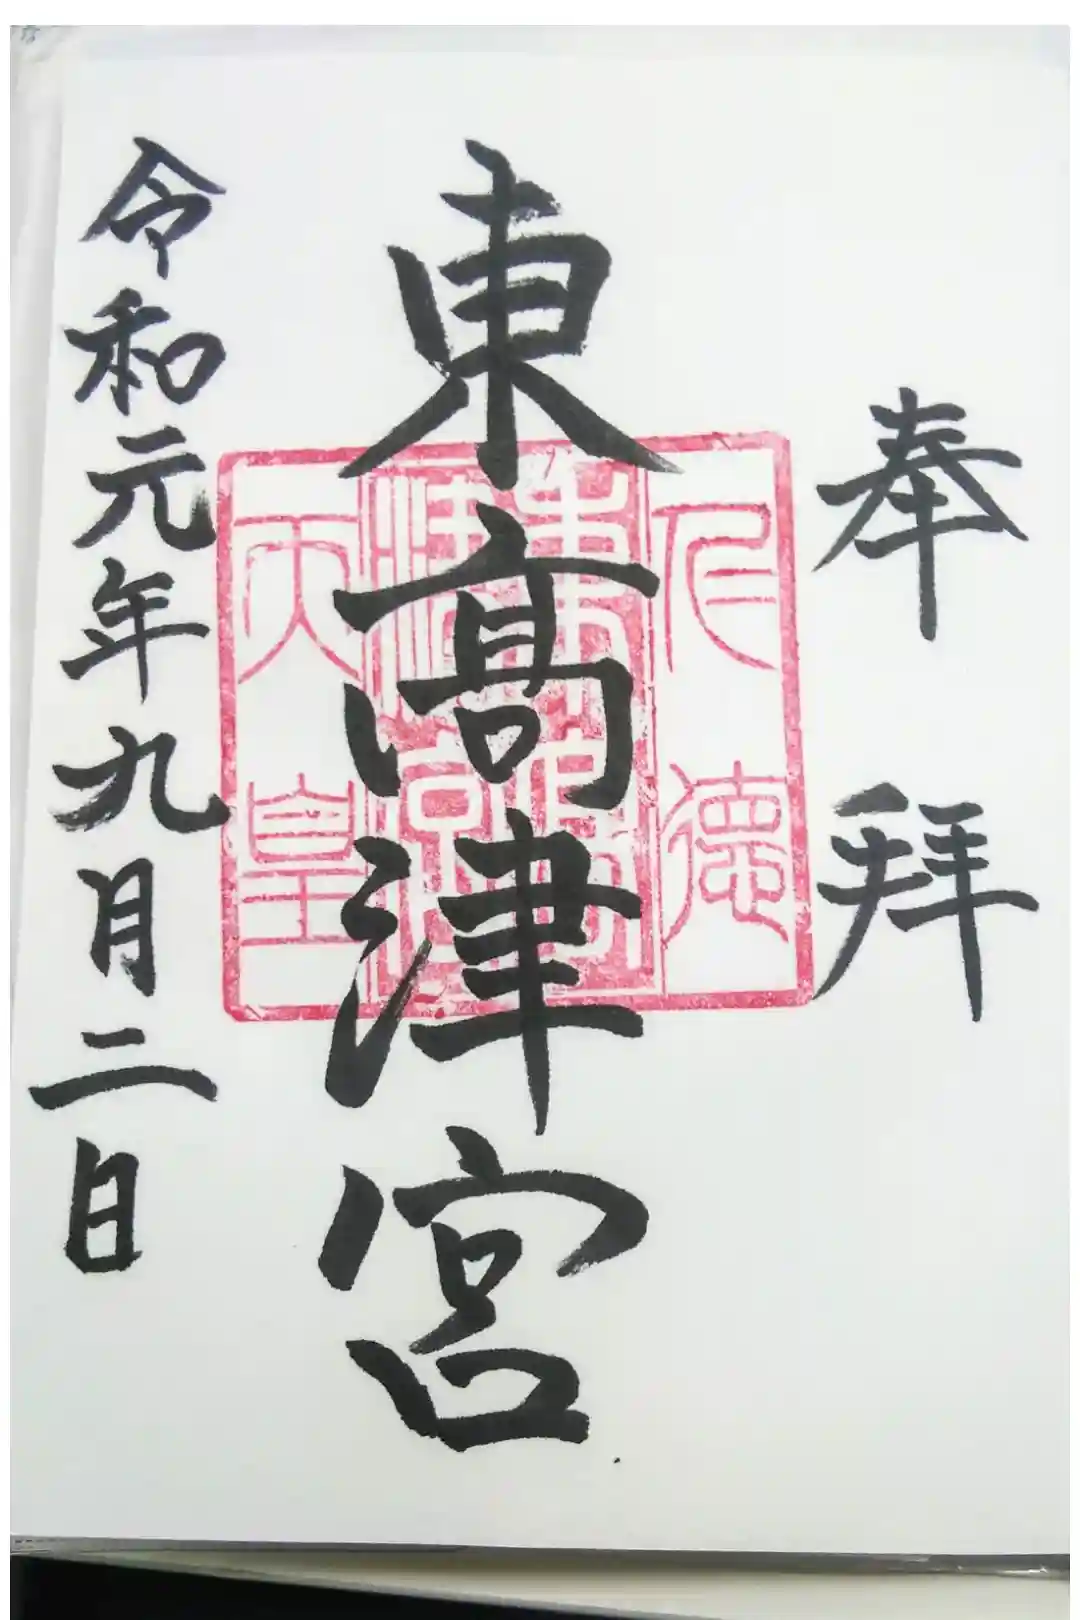 奉拝
東高津宮
仁徳
東高
津宮
天皇
令和元年九月二日